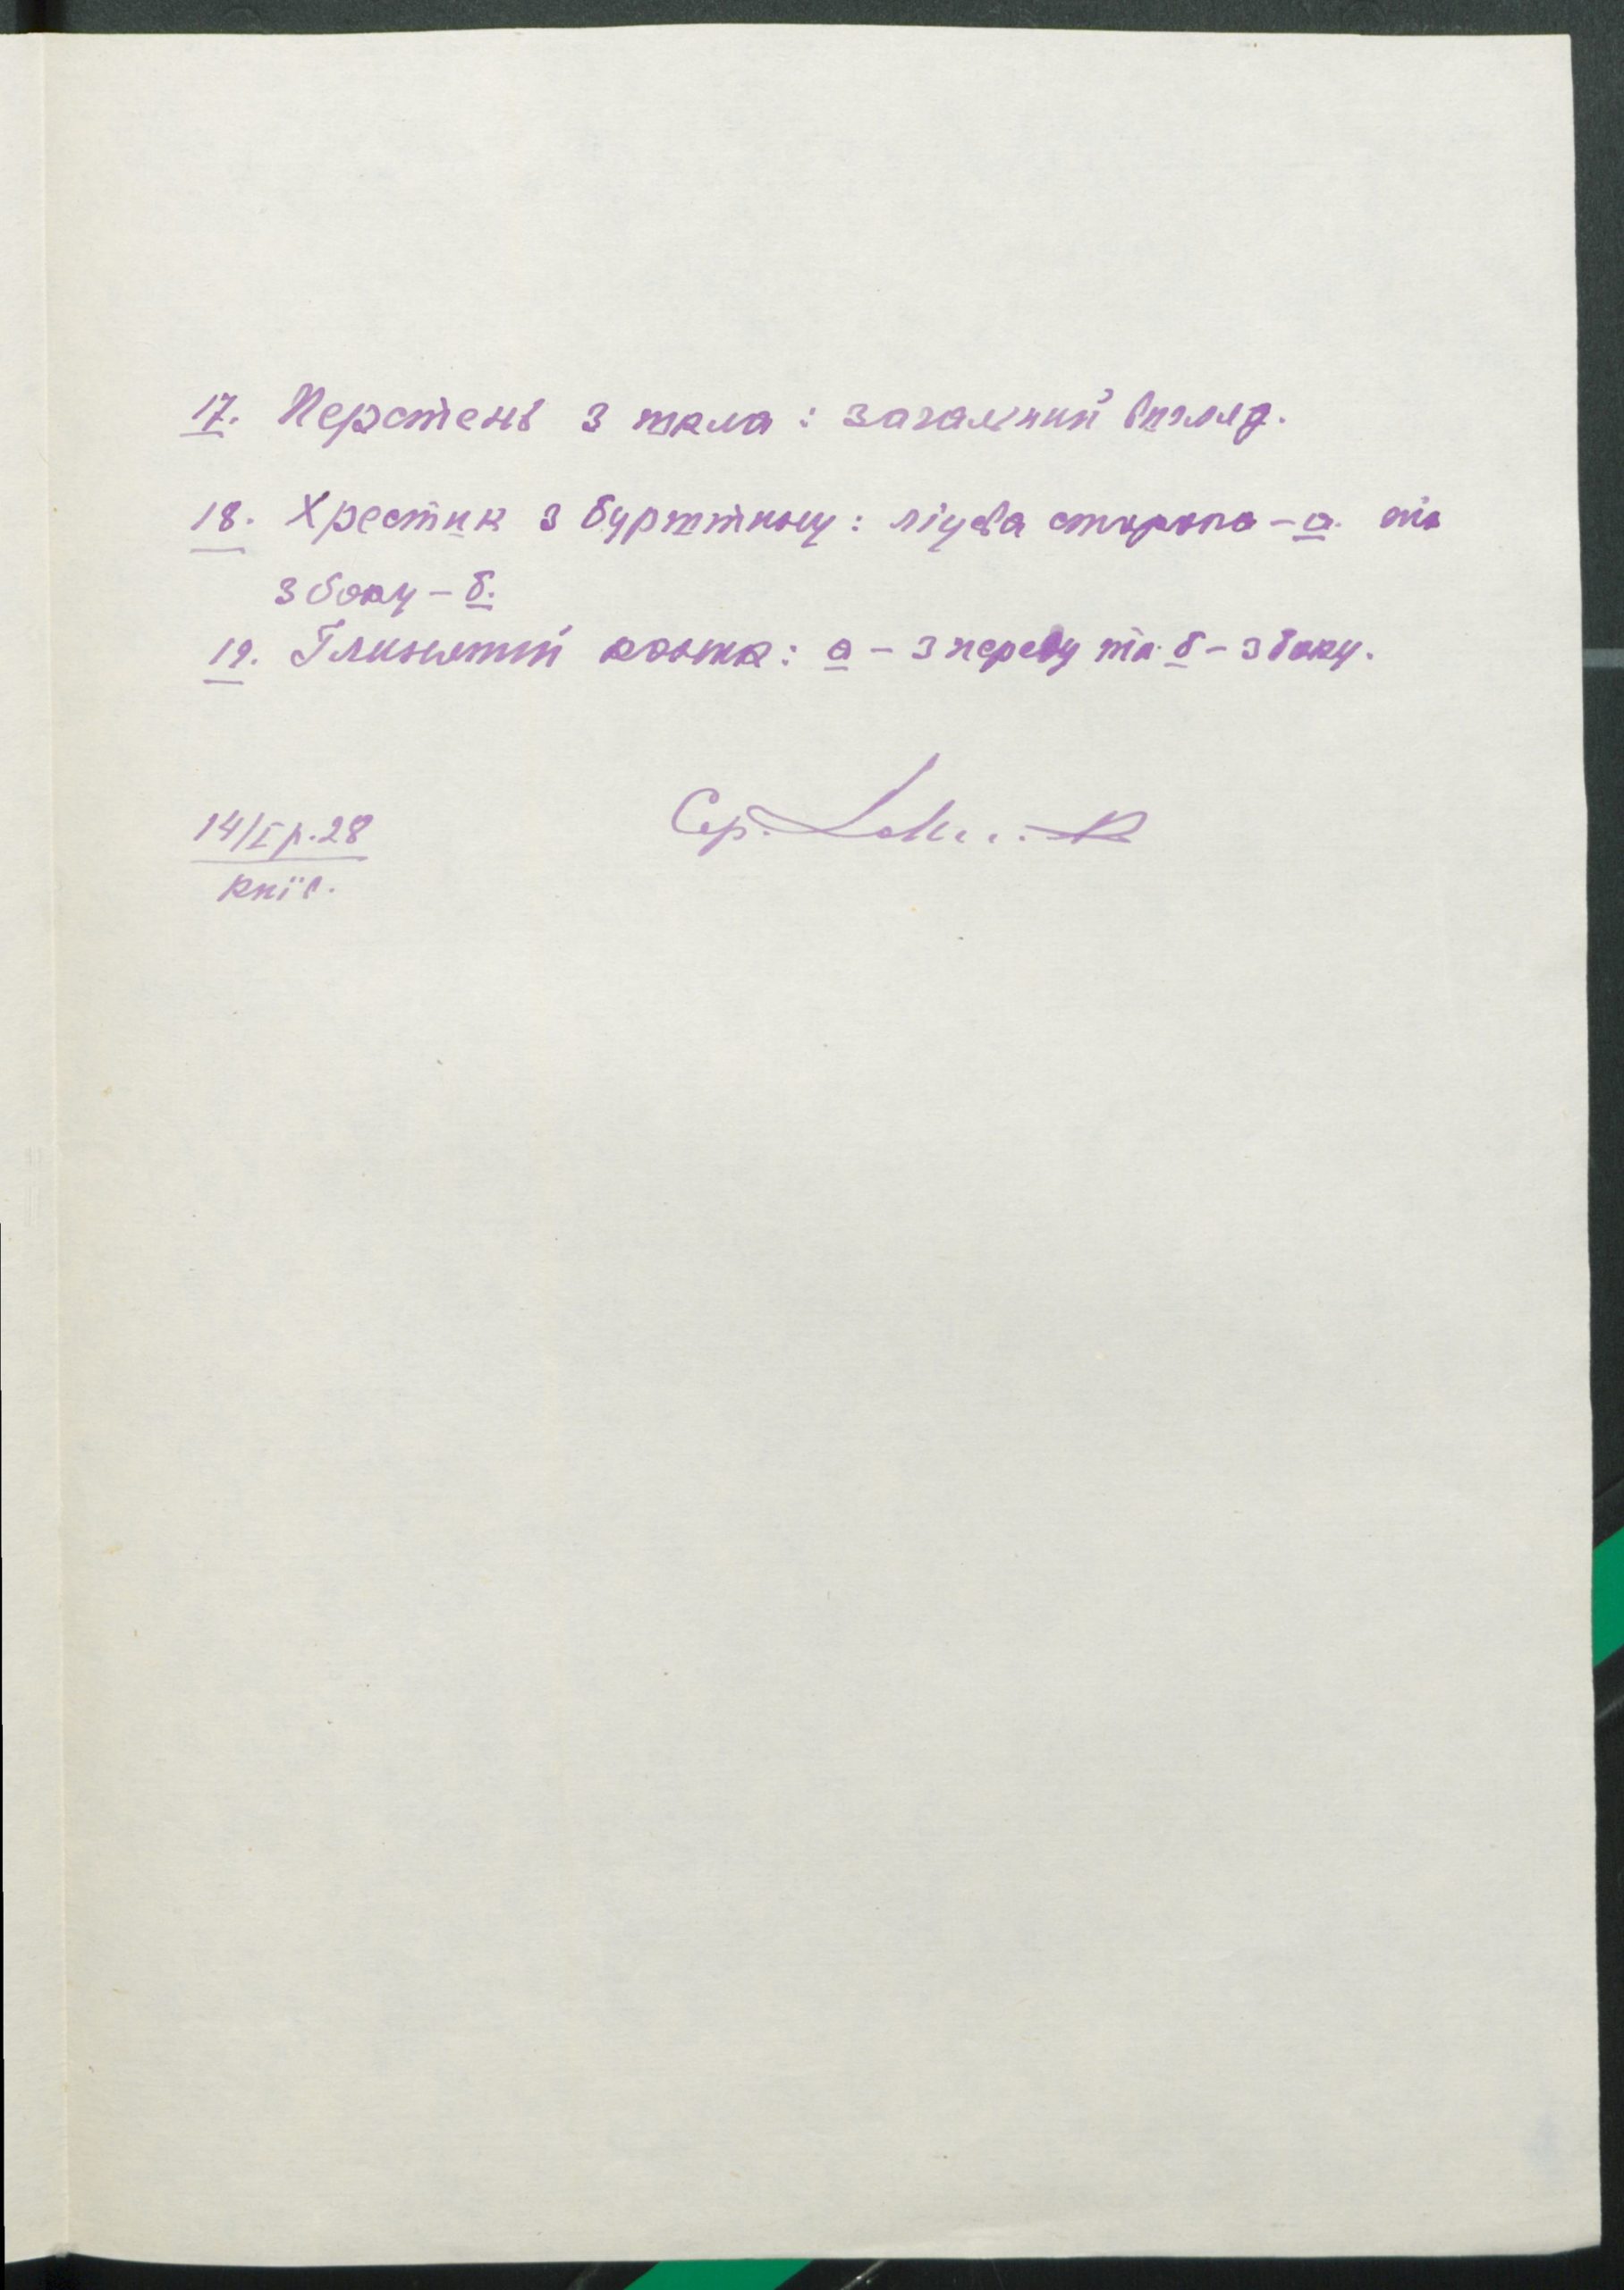 17. Перстень з шкла: загальний вигляд.
18. Хрестик з бурштину: ліцева сторона – а. та
з боку – б.
19. Глиняний коник: а – з переду та б – з боку.
14/I р. 28
Сер.
Київ.